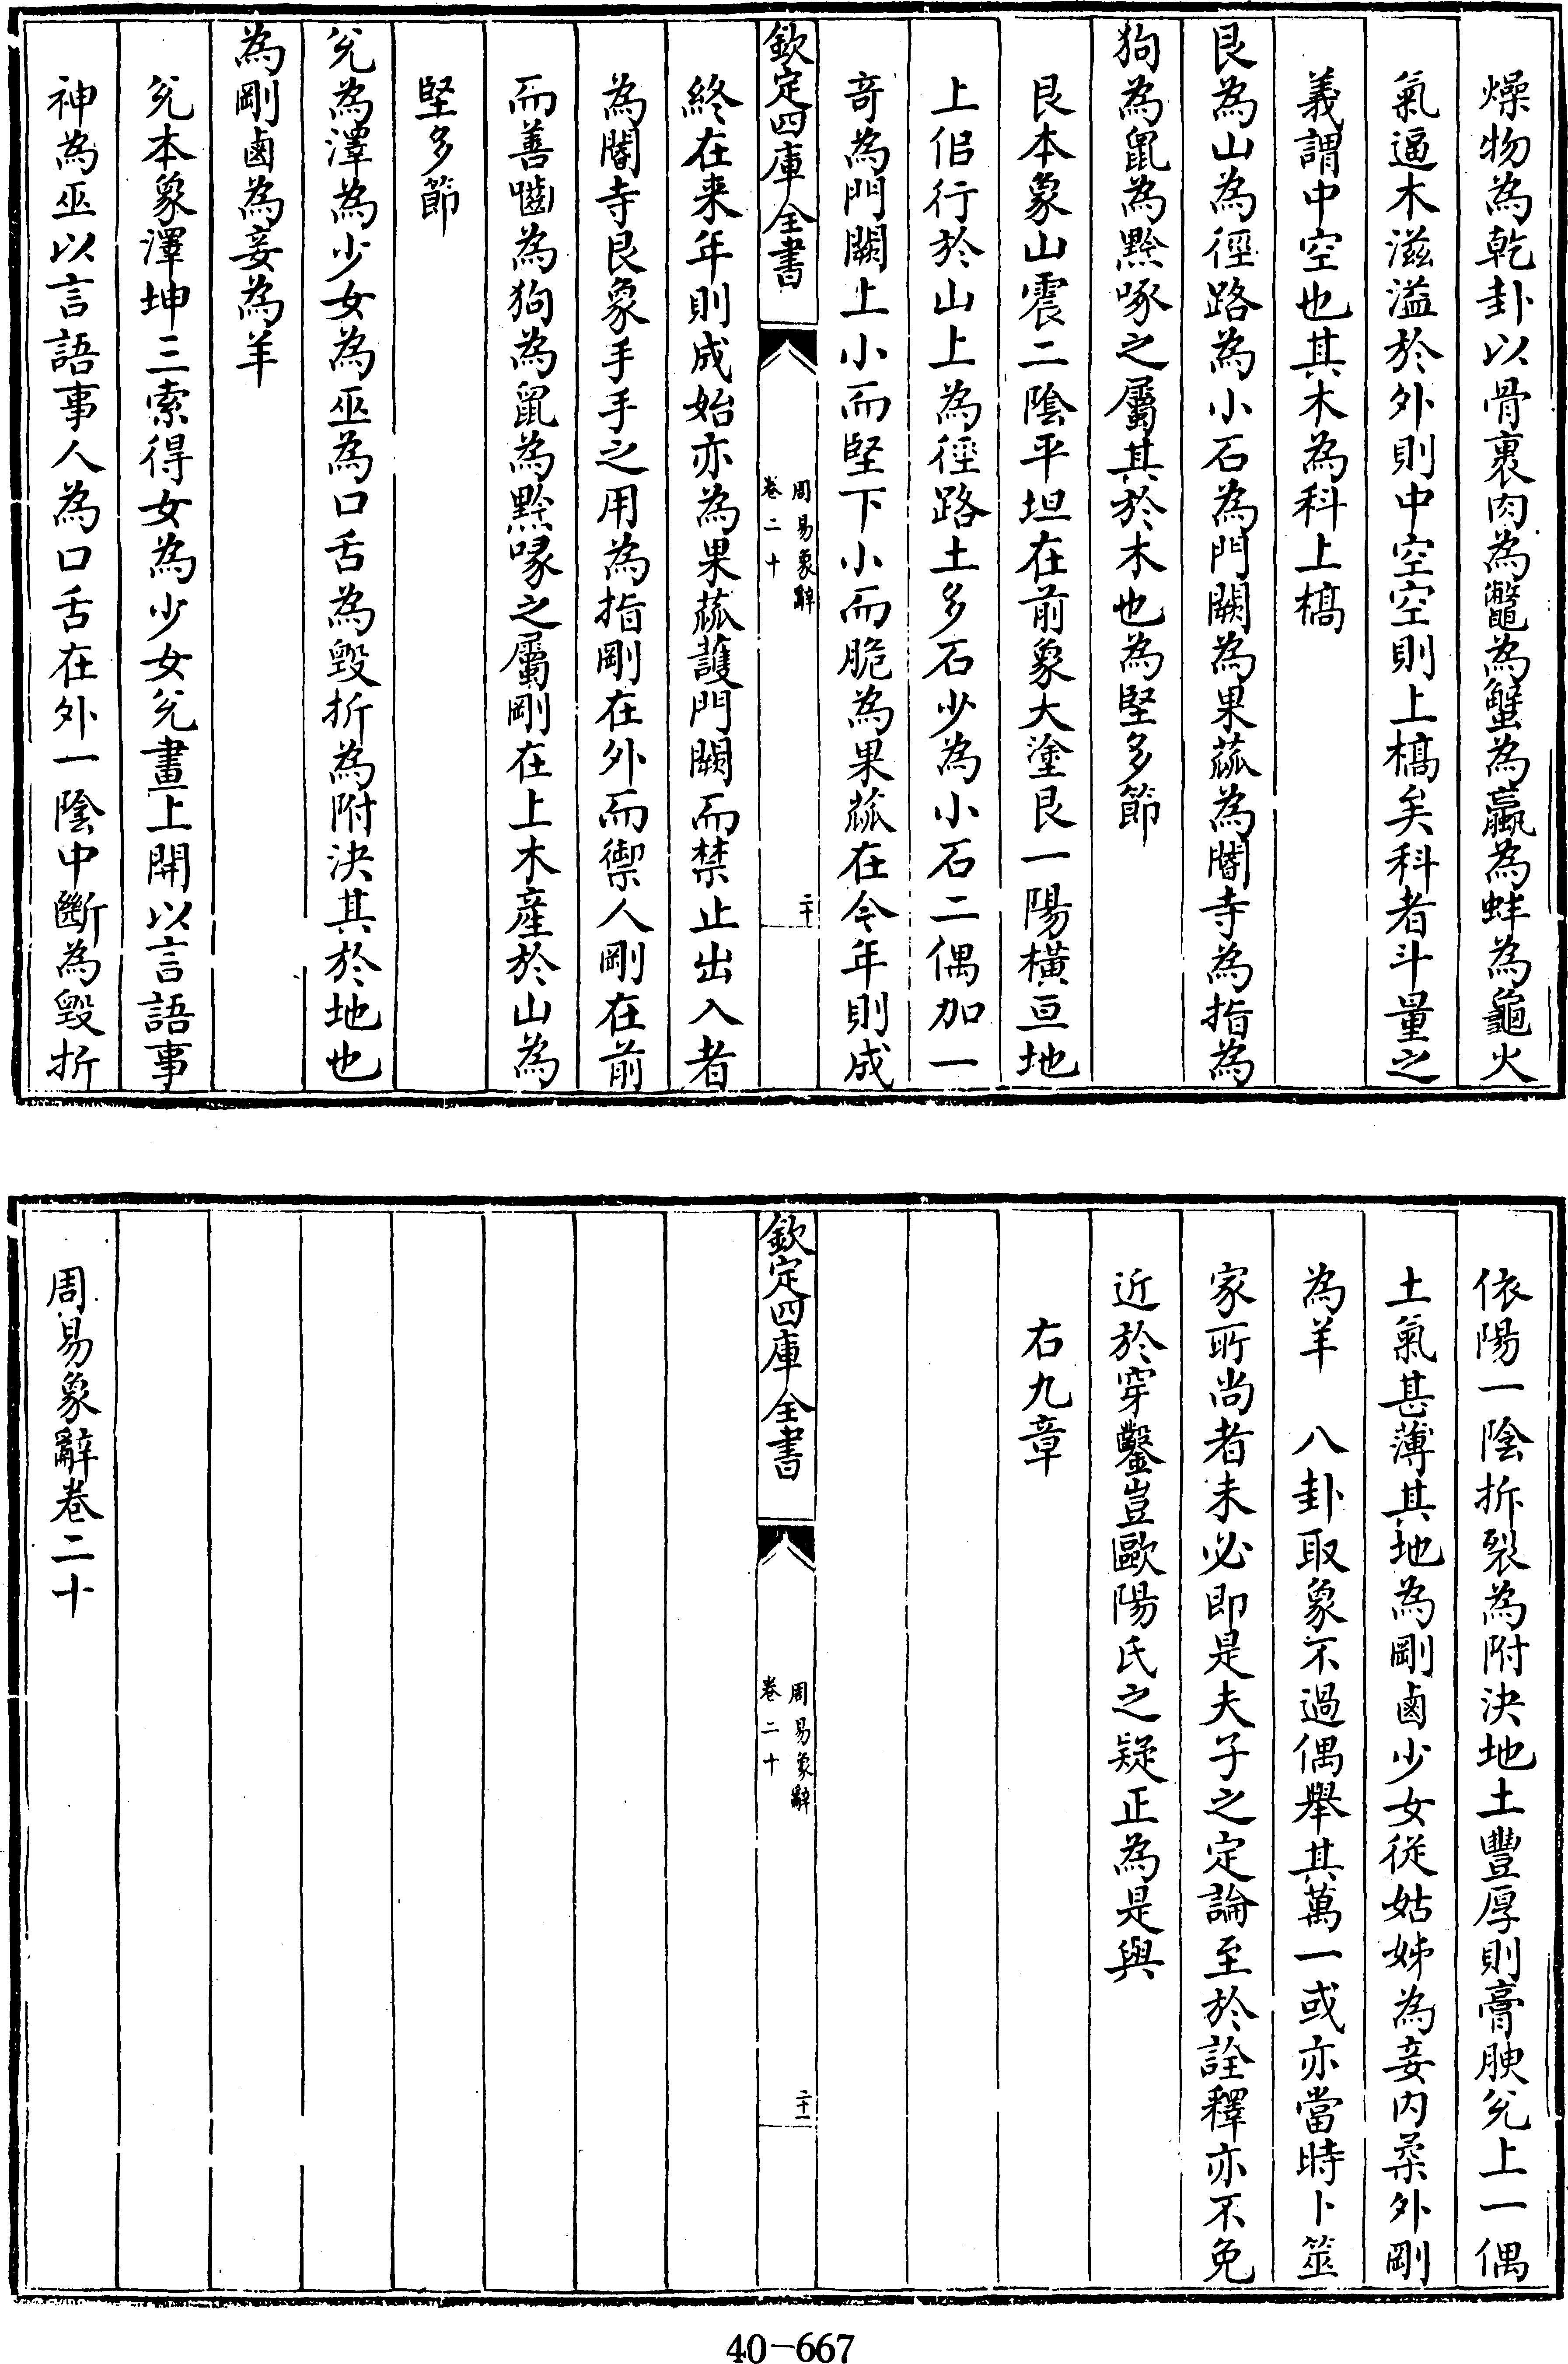 燥物為乾卦以骨裹肉為鼈為蟹為蠃為蚌為龜火
氣逼木滋溢於外則中空空則上槁矣科者斗量之
義謂中空也其木為科上槁
艮為山為徑路為小石為門闕為果蓏為閽寺為指為
狗為鼠為黔啄之屬其於木也為堅多節
艮本象山震二陰平坦在前象大塗艮一陽橫亘地
上但行於山上為徑路土多石少為小石二偶加一
竒為門闕上小而堅下小而脆為果蓏在今年則成
欽定四庫全書
周易象辭
卷二十
二十
終在来年則成始亦為果蓏護門闕而禁止出入者
為閽寺艮象手手之用為指剛在外而禦人剛在前
而善嚙為狗為鼠為黔喙之屬剛在上木産於山為
堅多節
兊為澤為少女為巫為口舌為毀折為附決其於地也
為剛鹵為妾為羊
兊本象澤坤三索得女為少女兊畫上開以言語事
神為巫以言語事人為口舌在外一陰中斷為毀折
依陽一陰折裂為附決地土豐厚則膏腴兊上一偶
土氣甚薄其地為剛鹵少女從姑姊為妾内柔外剛
為羊　八卦取象不過偶舉其萬一或亦當時卜筮
家所尚者未必即是夫子之定論至於詮釋亦不免
近於穿鑿豈歐陽氏之疑正為是與
右九章
欽定四庫全書
周易象辭
卷二十
二十一
周易象辭卷二十
40-667